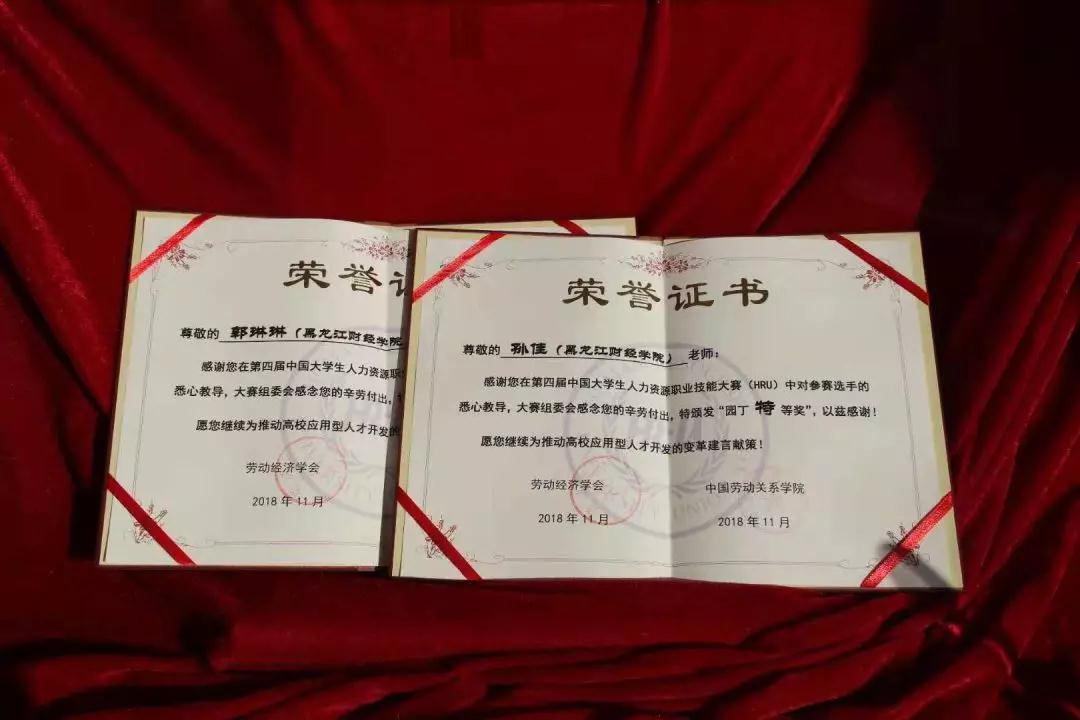 荣誉证
尊敬的 郭琳琳（黑龙江财经学院
感谢您在第四届中国大学生人力资源职
悉心教导，大赛组委会感念您的辛劳付出，
愿您继续为推动高校应用型人才开发的
劳动经济学会
2018 年 11 月
荣誉证书
尊敬的 孙佳（黑龙江财经学院） 老师：
感谢您在第四届中国大学生人力资源职业技能大赛（HRU）中对参赛选手的
悉心教导，大赛组委会感念您的辛劳付出，特颁发“园丁 特 等奖”，以兹感谢！
愿您继续为推动高校应用型人才开发的变革建言献策！
劳动经济学会 中国劳动关系学院
2018 年 11 月 2018 年 11 月